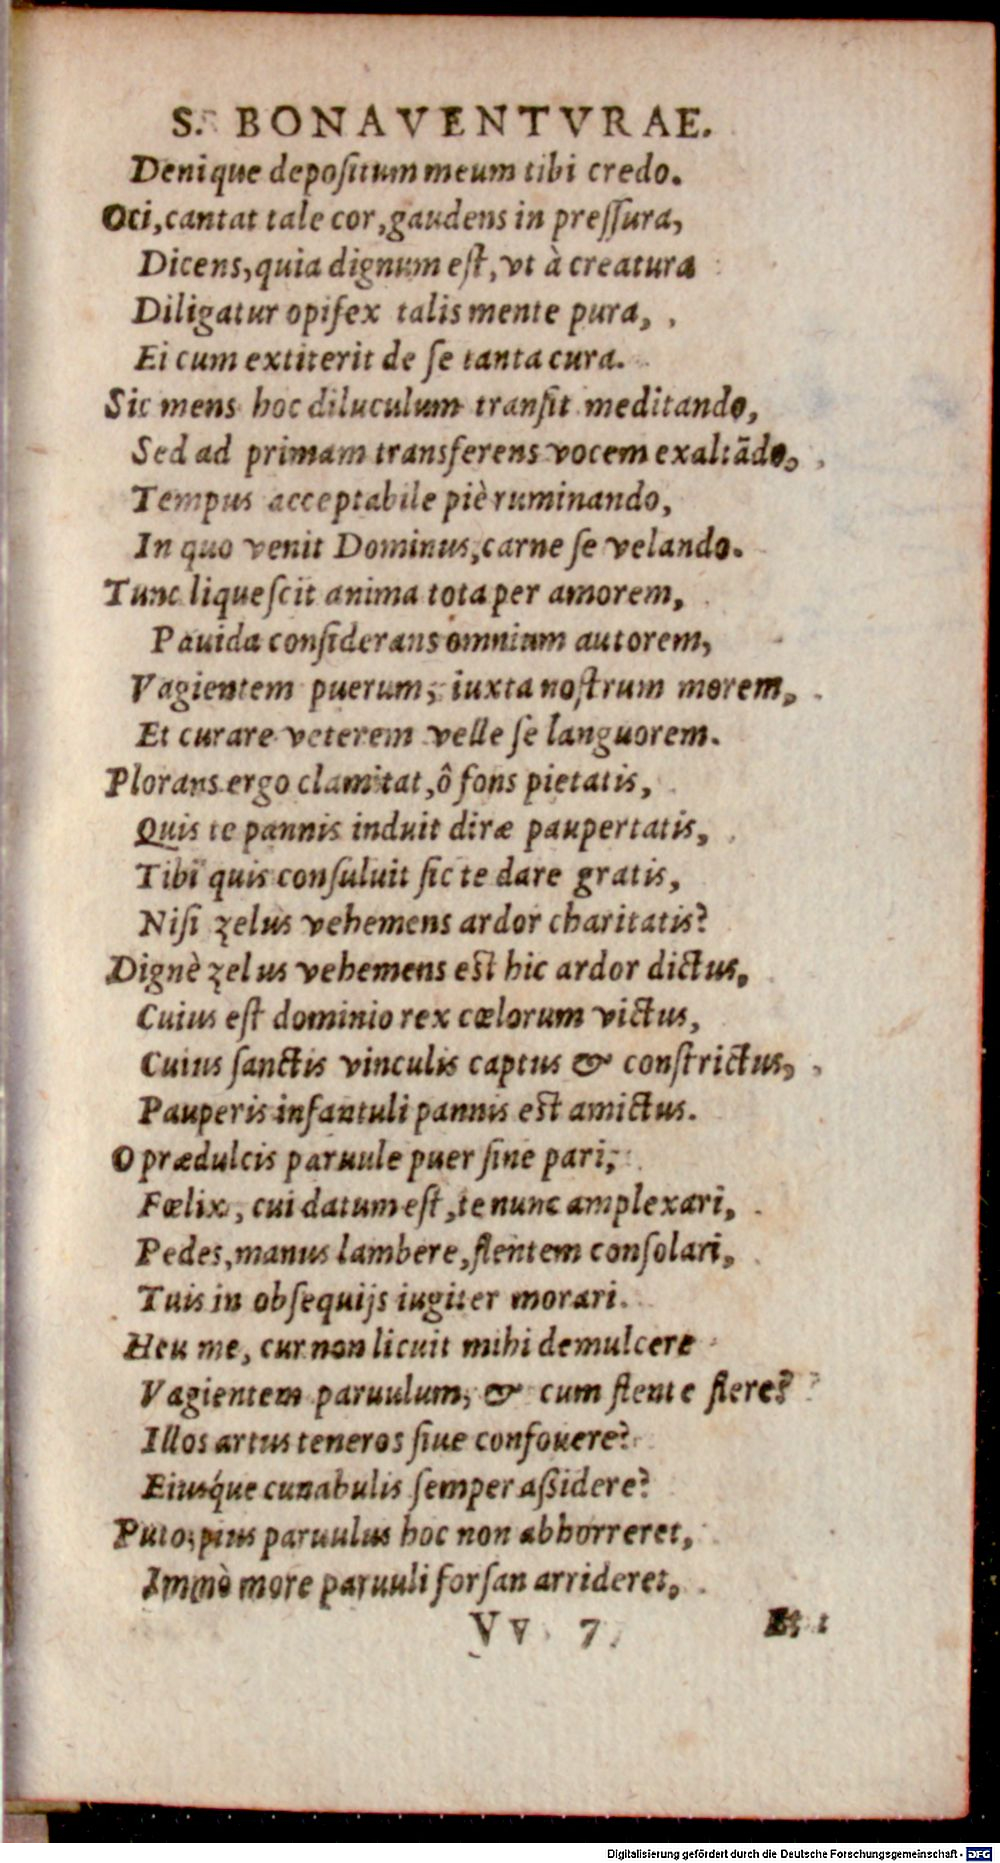 S. BONAVENTVRAE.
Denique depoſitum meum tibi credo.
Oci, cantat tale cor, gaudens in preſſura,
Dicens, quia dignum eſt, vt à creatura
Diligatur opifex talis mente pura,
Ei cum extiterit de ſe tanta cura.
Sic mens hoc diluculum tranſit meditando,
Sed ad primam transferens vocem exaltãdo,
Tempus acceptabile piè ruminando,
In quo venit Dominus, carne ſe velando.
Tunc liqueſcit anima tota per amorem,
Pauida conſiderans omnium autorem,
Vagientem puerum, iuxta noſtrum morem,
Et curare veterem velle ſe languorem.
Plorans ergo clamitat, ô fons pietatis,
Quis te pannis induit diræ paupertatis,
Tibi quis conſuluit ſic te dare gratis,
Niſi zelus vehemens ardor charitatis?
Dignè zelus vehemens eſt hic ardor dictus,
Cuius eſt dominio rex cœlorum victus,
Cuius ſanctis vinculis captus & conſtrictus,
Pauperis infantuli pannis eſt amictus.
O prædulcis paruule puer ſine pari,
Fœlix, cui datum eſt, te nunc amplexari,
Pedes, manus lambere, flentem conſolari,
Tuis in obſequijs iugiter morari.
Heu me, cur non licuit mihi demulcere
Vagientem paruulum, & cum flente flere?
Illos artus teneros ſiue confouere?
Eiusq́ue cunabulis ſemper aſſidere?
Puto, pius paruulus hoc non abhorreret,
Immò more paruuli forſan arrideret,
Vv 7
Et
Digitalisierung gefördert durch die Deutsche Forschungsgemeinschaft - DFG